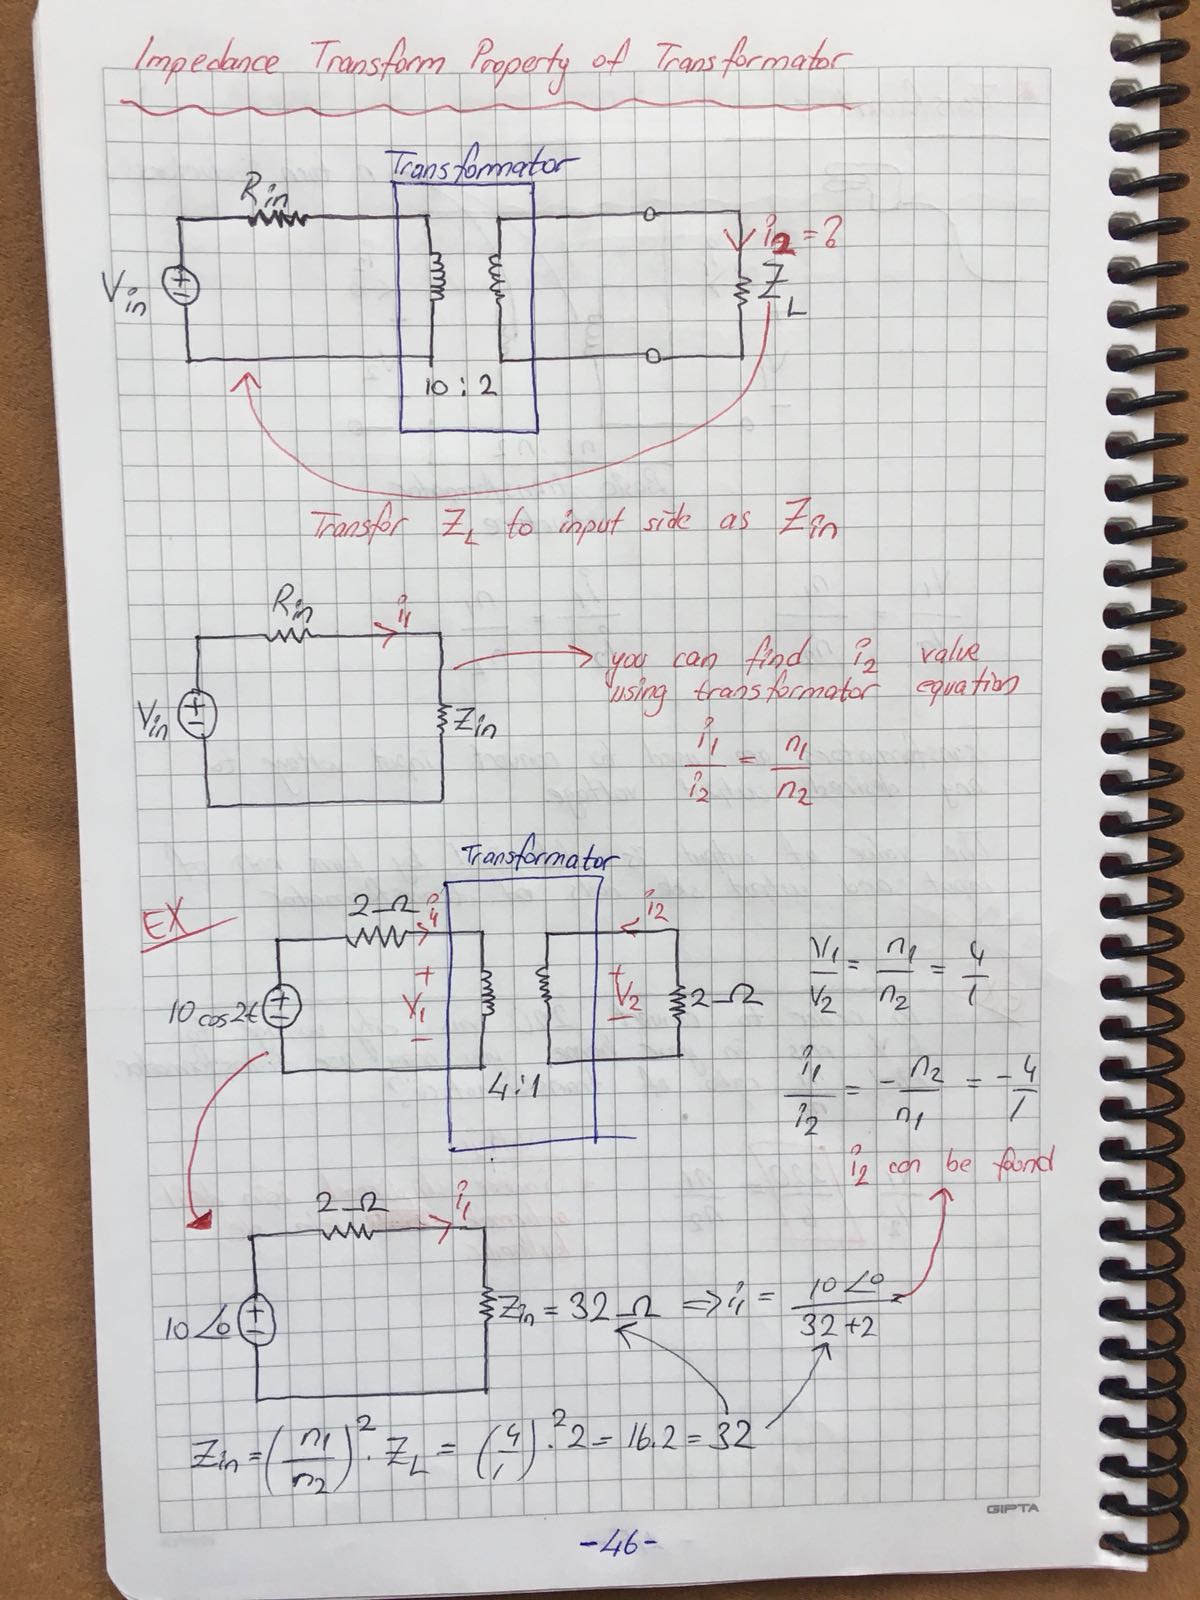 Impedance Transform Property of Transformator
Transformator
Rin
Vin
i2 = ?
ZL
10 : 2
Transfer ZL to input side as Zin
Rin
i1
Vin
Zin
you can find i2 value
using transformator equation
i1/i2 = n1/n2
Transformator
EX
2 Ω
i1
i2
10 cos2t
+
V1
-
+
V2
-
2 Ω
4:1
V1/V2 = n1/n2 = 4/1
i1/i2 = - n2/n1 = - 4/1
i2 can be found
2 Ω
i1
10∠0
Zin = 32 Ω ⇒ i1 = 10∠0/32+2
Zin = (n1/n2)². ZL = (4/1)².2 = 16.2 = 32
GIPTA
-46-